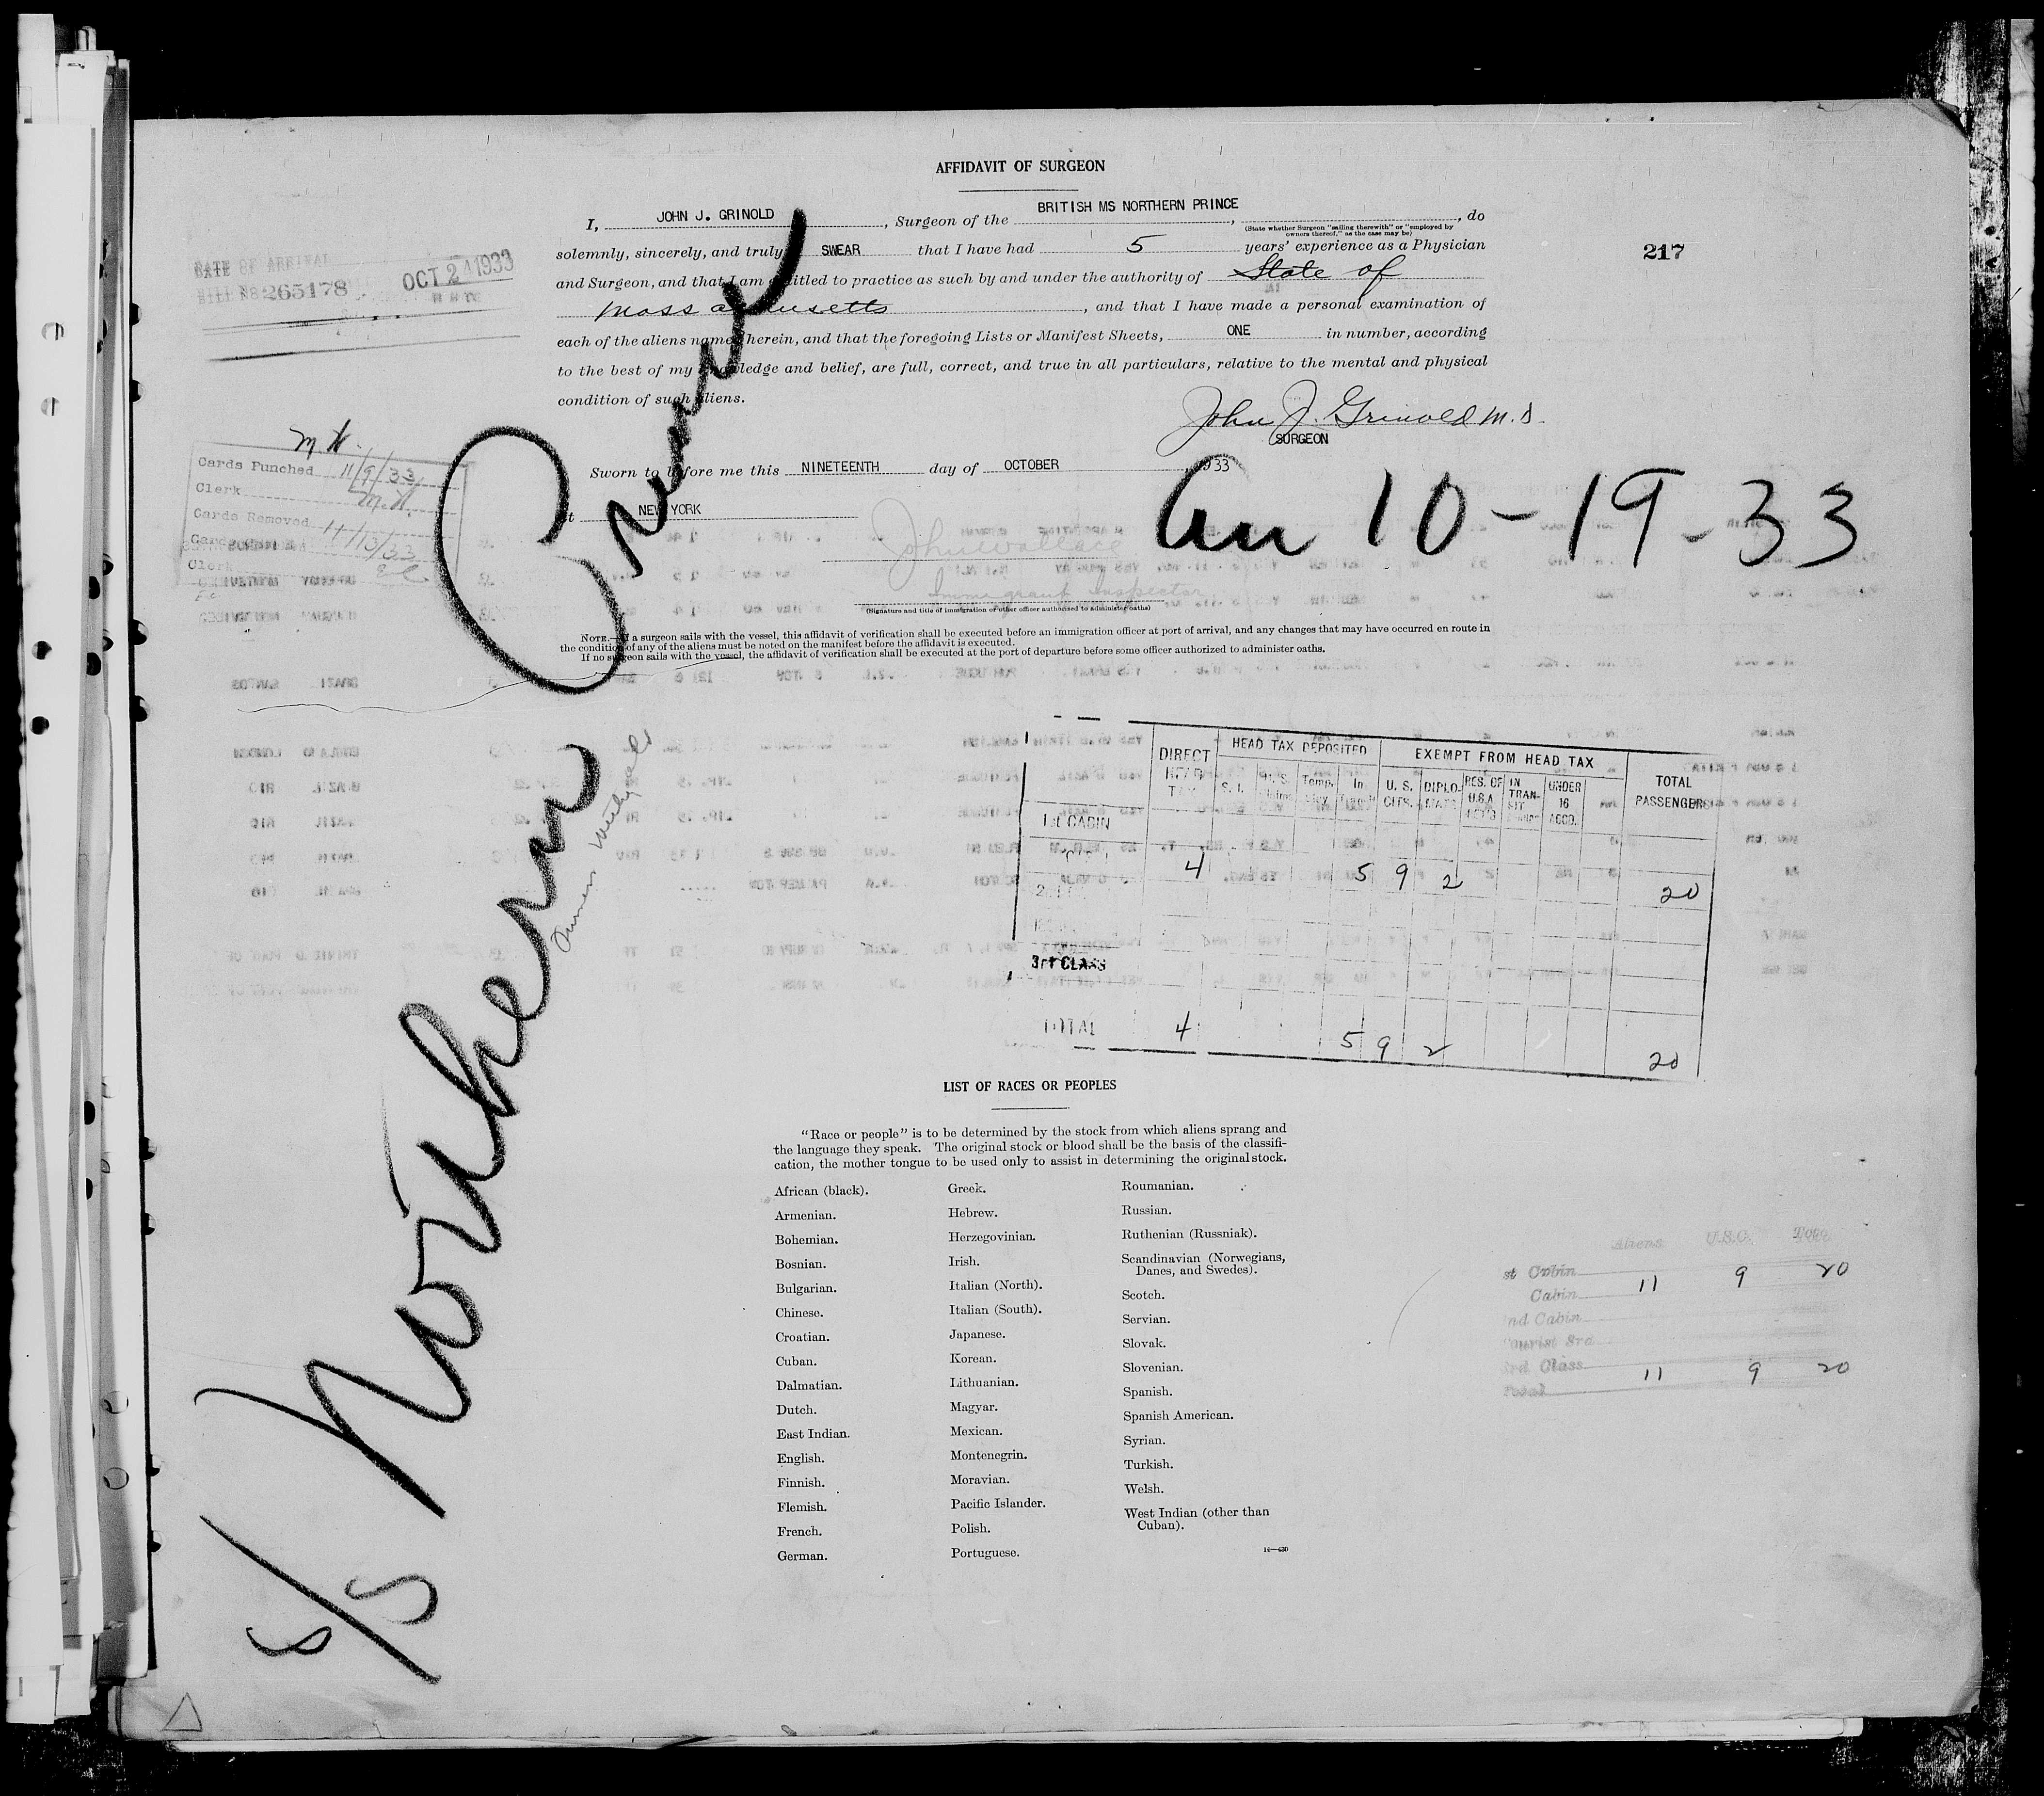 AFFIDAVIT OF SURGEON
I, JOHN J. GRINOLD, Surgeon of the BRITISH MS NORTHERN PRINCE, do
(State whether Surgeon "sailing therewith" or "employed by
owners thereof," as the case may be)
solemnly, sincerely, and truly SWEAR that I have had 5 years' experience as a Physician
217
and Surgeon, and that I am entitled to practice as such by and under the authority of State of
Massachusetts, and that I have made a personal examination of
each of the aliens named herein, and that the foregoing Lists or Manifest Sheets, ONE in number, according
to the best of my knowledge and belief, are full, correct, and true in all particulars, relative to the mental and physical
condition of such aliens.
DATE OF ARRIVAL OCT 24 1933
BILL NO 265178
John J. Grinold M.D.
SURGEON
Sworn to before me this NINETEENTH day of OCTOBER 1933
at NEW YORK
John Wallace
Immigrant Inspector
(Signature and title of immigration or other officer authorized to administer oaths)
10-19-33
M H.
Cards Punched 11/9/33
Clerk M.H.
Cards Removed 11/13/33
Clerk
NOTE.—If a surgeon sails with the vessel, this affidavit of verification shall be executed before an immigration officer at port of arrival, and any changes that may have occurred en route in
the condition of any of the aliens must be noted on the manifest before the affidavit is executed.
If no surgeon sails with the vessel, the affidavit of verification shall be executed at the port of departure before some officer authorized to administer oaths.
S/S Northern Prince
DIRECT HEAD TAX HEAD TAX DEPOSITED EXEMPT FROM HEAD TAX TOTAL PASSENGERS
S. I. Temp. In U. S. CITS. DIPLO- MATS RES. OF U.S.A. IN TRAN- SIT UNDER 16 ACCO.
1st CABIN
4 5 9 2 20
3rd CLASS
TOTAL 4 5 9 2 20
LIST OF RACES OR PEOPLES
"Race or people" is to be determined by the stock from which aliens sprang and
the language they speak. The original stock or blood shall be the basis of the classifi-
cation, the mother tongue to be used only to assist in determining the original stock.
African (black).
Armenian.
Bohemian.
Bosnian.
Bulgarian.
Chinese.
Croatian.
Cuban.
Dalmatian.
Dutch.
East Indian.
English.
Finnish.
Flemish.
French.
German.
Greek.
Hebrew.
Herzegovinian.
Irish.
Italian (North).
Italian (South).
Japanese.
Korean.
Lithuanian.
Magyar.
Mexican.
Montenegrin.
Moravian.
Pacific Islander.
Polish.
Portuguese.
Roumanian.
Russian.
Ruthenian (Russniak).
Scandinavian (Norwegians,
Danes, and Swedes).
Scotch.
Servian.
Slovak.
Slovenian.
Spanish.
Spanish American.
Syrian.
Turkish.
Welsh.
West Indian (other than
Cuban).
14—430
Aliens U.S.C. Total
st Cabin 11 9 20
Cabin
nd Cabin
ourist 3rd
rd Class 11 9 20
Total